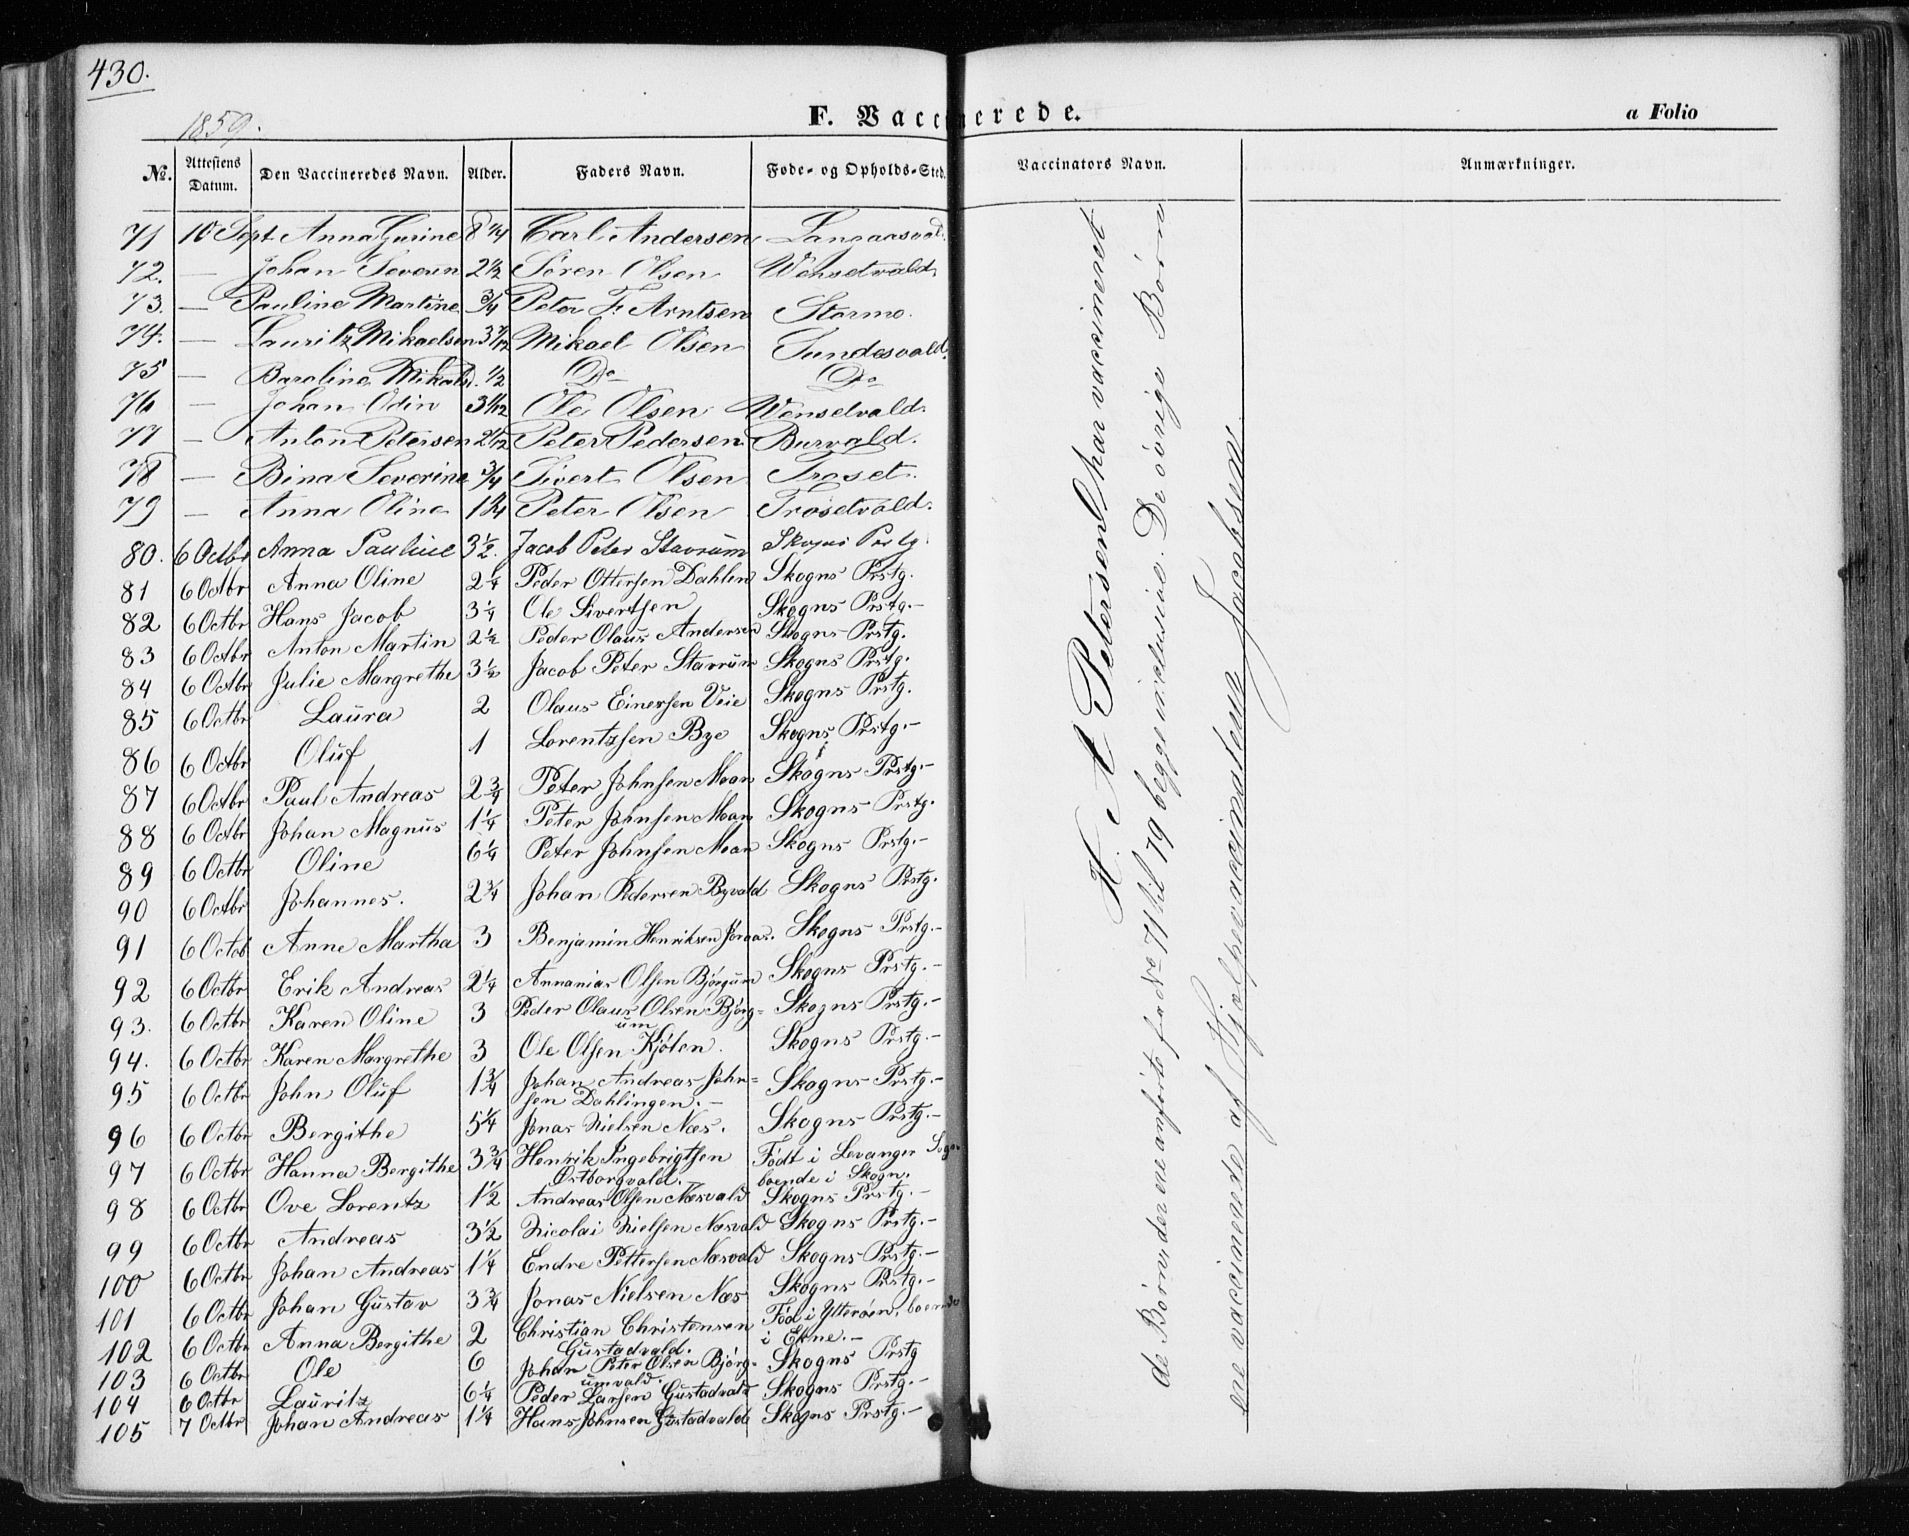 430.
1859.
F. Vaccinerede.
a Folio
No. Attestens Datum. Den Vaccineredes Navn. Alder. Faders Navn. Føde- og Opholds-Sted. Vaccinators Navn. Anmærkninger.
71 10 Sept Anna Gurine 8 1/4 Carl Andersen Langaasvald.
72. — Johan Severin 2 1/2 Sören Olsen Wensetvald.
73. — Pauline Martine 3/4 Peter F. Arntsen Stormo.
74. — Lauritz Mikaelsen 3 7/12 Mikael Olsen Sundesvald.
75 — Baroline Mikaelsd. 1/2 Do Do
76 — Johan Odin 3 1/12 Ole Olsen Wensetvald.
77 — Anton Petersen 2 1/12 Peter Pedersen Burvald.
78 — Bina Severine 3/4 Sivert Olsen Troset.
79 — Anna Oline 1 1/4 Peter Olsen Trosetvald.
80. 6 Octbr Anna Pauline 3 1/2. Jacob Peter Stavrum Skogns Prstg.
81 6 Octbr Anna Oline 2 1/4 Peder Ottersen Dahlen Skogns Prstg.
82 6 Octbr Hans Jacob 3 1/4 Ole Sivertsen Skogns Prstg.-
83 6 Octbr Anton Martin 2 1/2 Peder Olaus Andersen Skogns Prstg.
84 6 Octbr Julie Margrethe 3 1/2 Jacob Peter Stavrum Skogns Prstg.
85 6 Octbr Laura 2 Olaus Einersen Veie Skogns Prstg.
86 6 Octbr Oluf 1 Lorentzsen Bye Skogns Prstg.-
87 6 Octbr Paul Andreas 2 3/4 Peter Johnsen Moan Skogns Prstg.-
88 6 Octbr Johan Magnus 1 1/4 Peter Johnsen Moan Skogns Prstg.
89 6 Octbr Oline 6 1/4 Peter Johnsen Moan Skogns Prstg.-
90 6 Octbr Johannes. 2 3/4 Johan Pedersen Byvald Skogns Prstg.
91 6 Octob Anne Martha 3 Benjamin Henriksen Skogns Prstg.-
92 6 Octbr Erik Andreas 2 1/4 Annanias Olsen Bjørgum Skogns Prstg.-
93. 6 Octbr Karen Oline 3 Peder Olaus Olsen Bjørg= Skogns Prstg.-
um
94. 6 Octbr Karen Margrethe 3 Ole Olsen Kjølen. Skogns Prstg.-
95 6 Octbr John Oluf 1 3/4 Johan Andreas John= Skogns Prstg.-
sen Dahlingen.-
96 6 Octbr Bergithe 5 1/4 Jonas Nielsen Næs. Skogns Prstg.-
97 6 Octbr Hanna Bergithe 3 3/4 Henrik Ingebrigtsen Født i Levanger Sogn
Østborgvald. boende i Skogn.
98 6 Octbr Ove Lorentz 1 1/2 Andreas Olsen Næsvald Skogns Prstg.-
99 6 Octbr Andreas 3 1/2 Nicolai Nielsen Næsvald Skogns Prstg.-
100 6 Octbr Johan Andreas 1 1/4 Endre Pettersen Næsvald Skogns Prstg.-
101 6 Octbr Johan Gustav 3 3/4 Jonas Nielsen Næs Skogns Prstg.-
102 6 Octbr Anna Bergithe 2 Christian Christensen Fød i Ytterøen, boende
Gustadvald. i Ekne.-
103 6 Octbr Ole 6 Johan Peter Olsen Bjørg= Skogns Prstg
umvald.
104 6 Octbr Lauritz 6 1/4 Peder Larsen Gustadvald Skogns Prstg.-
105 7 Octbr Johan Andreas 1 1/4 Hans Johnsen Gustadvald Skogns Prstg.-
H. A Petersen har vaccineret
de Børn, der ere anførte fra No 71 til 79 begge inclusive. De øvrige Børn
ere vaccinerede af Hjælpevaccinateur Jacobsen